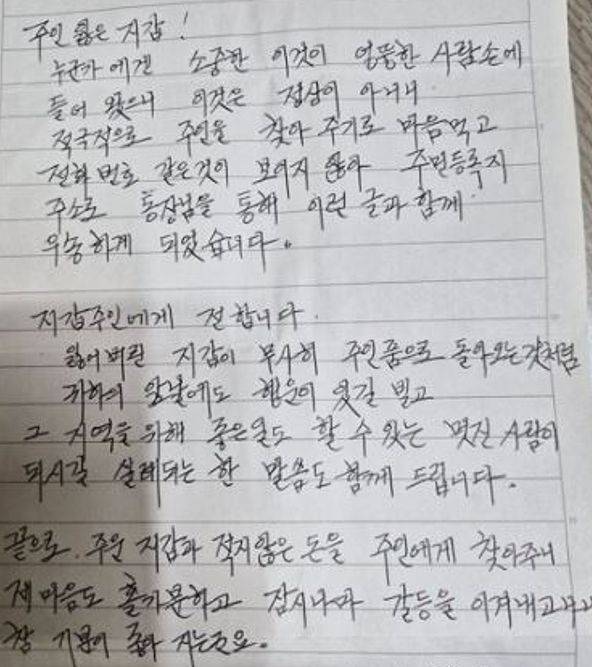 주인 잃은 지갑!
누군가에겐 소중한 이것이 엉뚱한 사람손에
들어 왔으니 이것은 정상이 아니니
적극적으로 주인을 찾아 주기로 마음먹고
전화 번호 같은것이 보이지 않아 주민등록지
주소로 통장님을 통해 이런 글과 함께
우송하게 되었습니다.
지갑주인에게 전합니다.
잃어버린 지갑이 무사히 주인품으로 돌아오는것처럼
귀하의 앞날에도 행운이 있길 빌고
그 지역을 위해 좋은일도 할 수 있는 멋진 사람이
되시길 실례되는 한 말씀도 함께 드립니다.
끝으로. 주운 지갑과 적지않은 돈을 주인에게 찾아주니
제 마음도 홀가분하고 잠시나마 갈등을 이겨내고나니
참 기분이 좋아 지는군요.